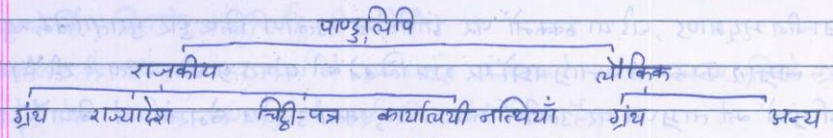 पाण्डुलिपि
राजकीय लौकिक
ग्रंथ राज्यादेश चिट्ठी-पत्र कार्यालयी नत्थियाँ ग्रंथ अन्य